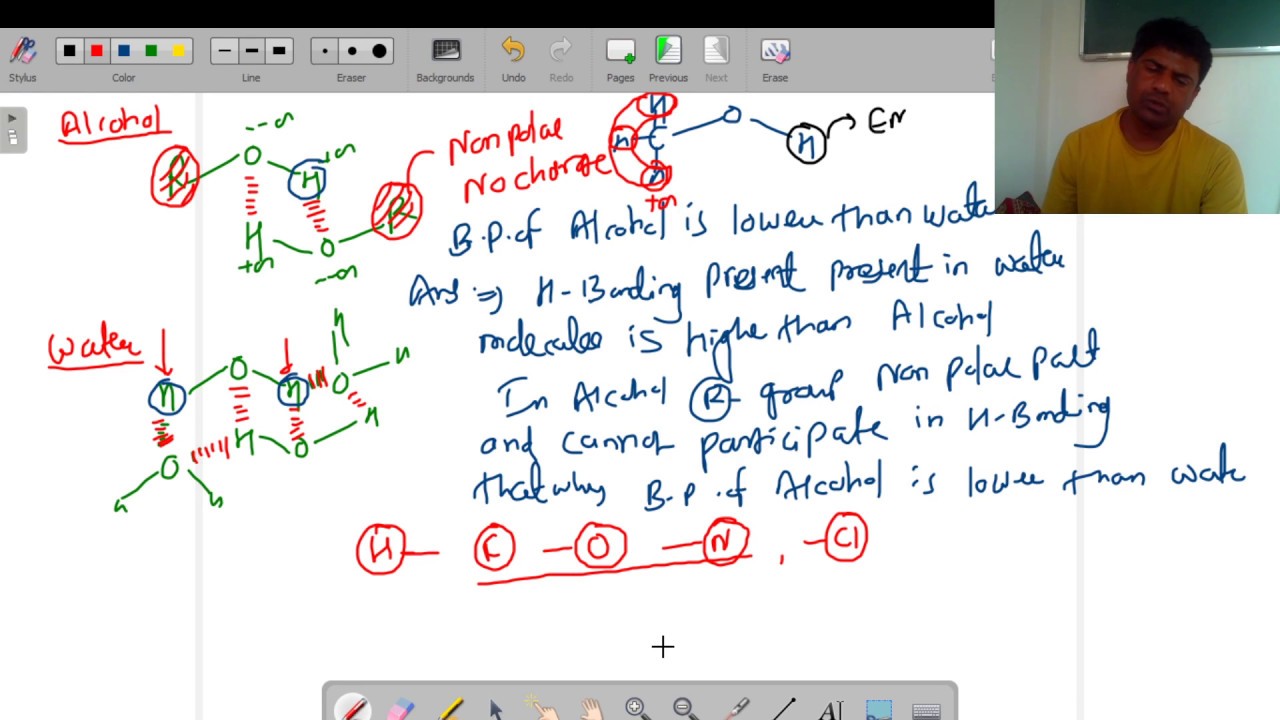 Stylus
Color
Line
Eraser
Backgrounds
Undo
Redo
Pages
Previous
Next
Erase
Alcohol
R O H
H O R
Non polar
No charge
H
H C O H → EN
H
B.P. of Alcohol is lower than water
Ans ⇒ H-Bonding present present in water
molecules is higher than Alcohol
In Alcohol R- group Non polar part
and cannot participate in H-Bonding
that why B.P. of Alcohol is lower than wate
water
H O H O H
H
O H O H
H H
H — F — O — N , — Cl